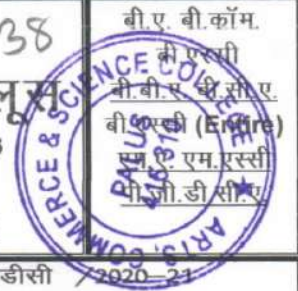 38
बी.ए. बी.कॉम.
बी.एस्सी
बी.बी.ए. बी.सी.ए.
लूस
बी.एस्सी (Entire)
एम.ए. एम.एस्सी
पी.जी.डी.सी.ए
ARTS, COMMERCE & SCIENCE COLLEGE
PALUS
416 310
डीसी /2020-21